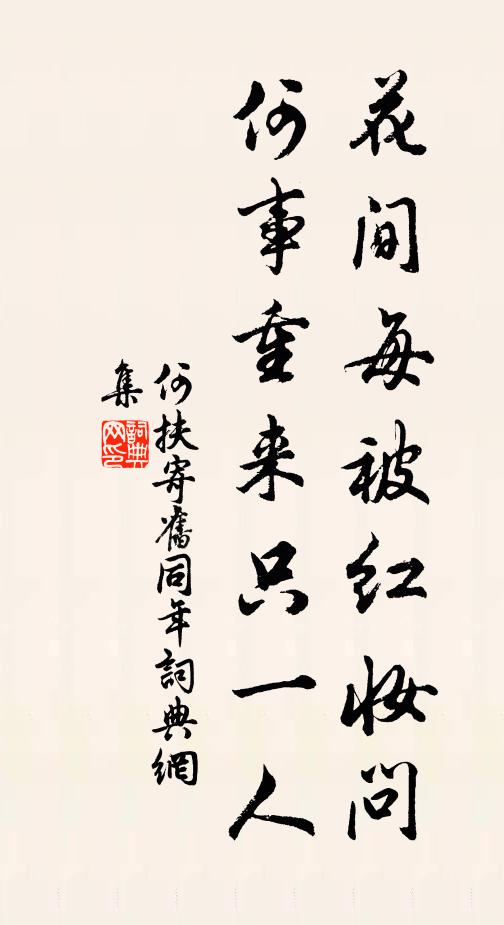 花间每被红妆问
何事重来只一人
何扶寄舊同年詞典網
集
詞典
网印